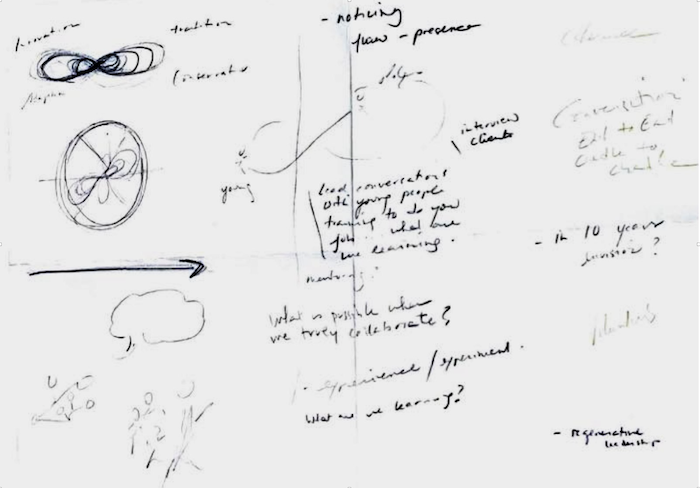 Innovation
tradition
- noticing
flow - presence
Conservation
young
interview
clients
lead conversations
with young people
training to do you
job .. what are
we learning.
mentoring?
Conversation
End to End
Cradle to
- in 10 years
What is possible when
we truly collaborate?
- experience / experiment.
What are we learning?
- regenerative
leadership